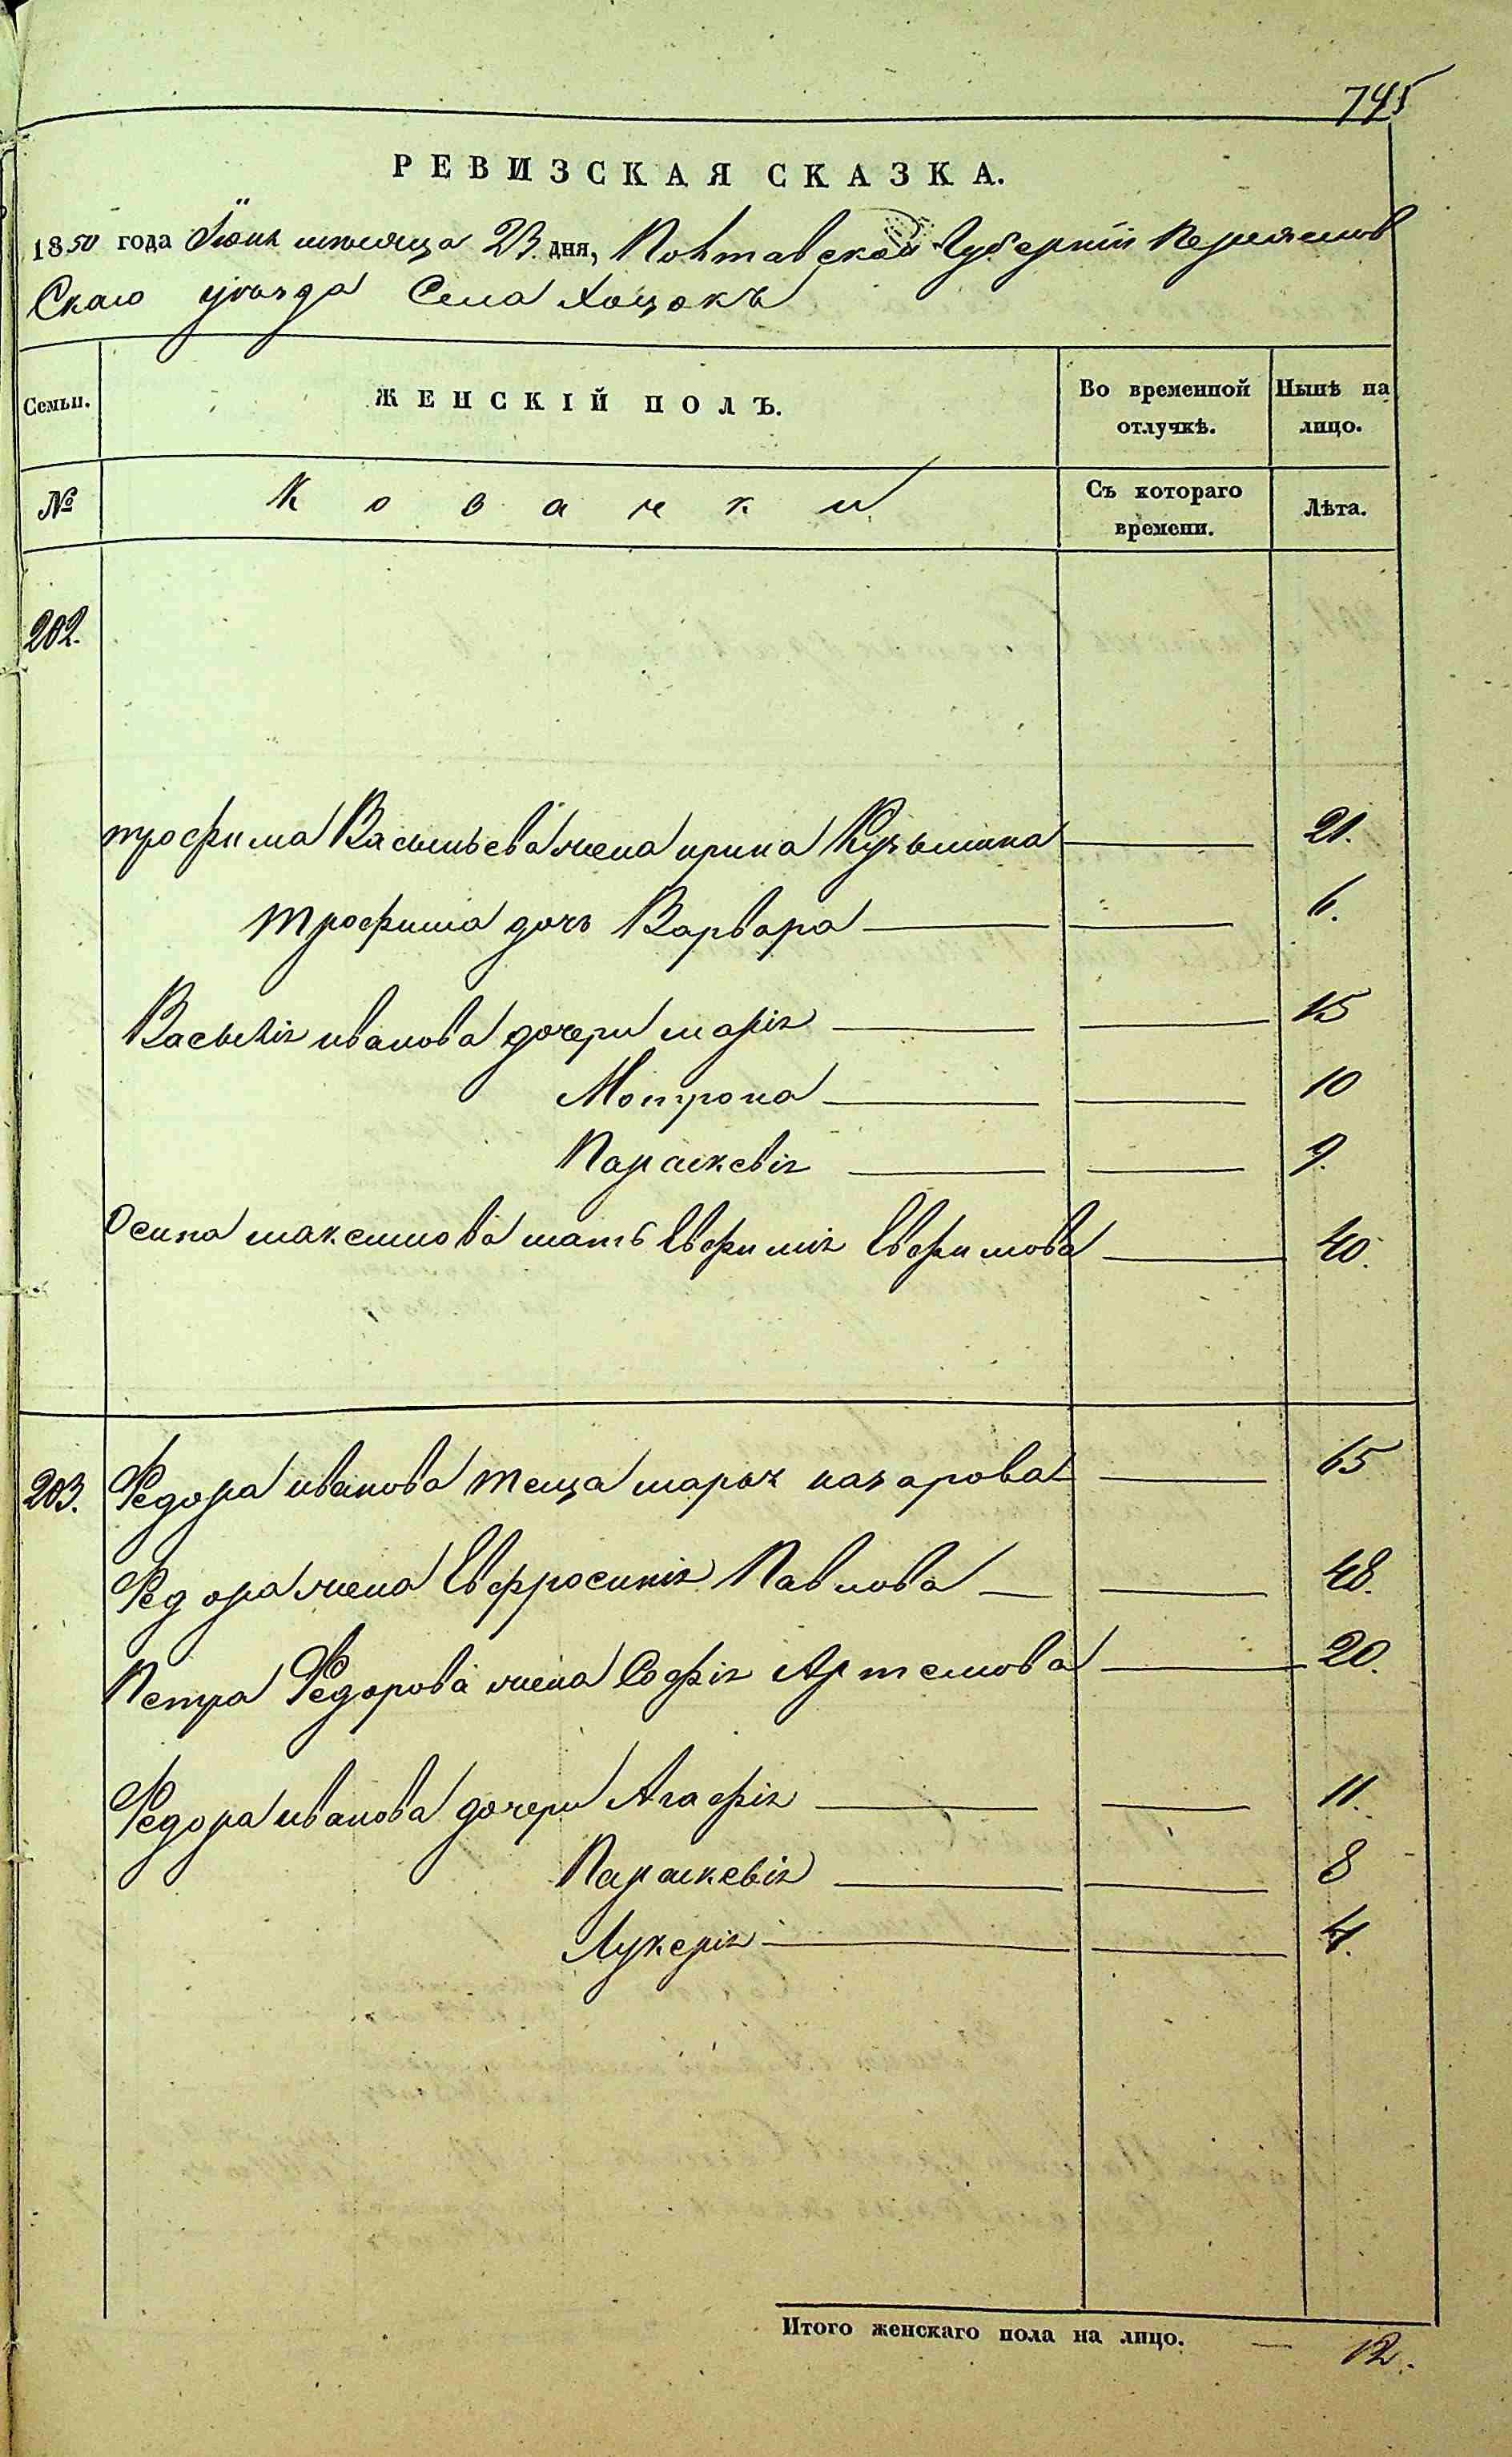 745
РЕВИЗСКАЯ СКАЗКА.
1850 года Іюня мѣсяца 23. дня, Полтавской Губерніи Переяслов
Скаго уѣзда Села Хоцокъ
Семьи. ЖЕНСКІЙ ПОЛЪ. Во временной отлучкѣ. Нынѣ на лицо.
№ Козачки Съ котораго времени. Лѣта.
202.
трофима Васильева жена ирина Кузьмина 21.
трофима дочь Варвара 6.
Василія иванова дочери марія 15
Мотрона 10
Параскевія 9.
Осипа максимова мать Евфимія Евфимова 40.
203. Федора иванова теща марья назарова 65
Федора жена Евфросинія Павлова 48.
Петра Федорова жена Софія Артемова 20.
Федора иванова дочери Агафія 11.
Параскевія 8
Лукерія 4.
Итого женскаго пола на лицо. 12.